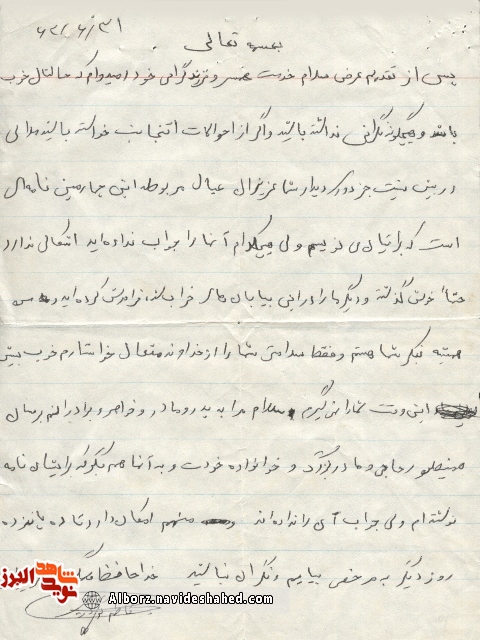 ۶۲/۶/۳۱
بسمه تعالی
پس از تقدیم عرض سلام خدمت همسر و فرزند گرامی خود امیدوام که حالتان خوب
باشد و هیچگونه نگرانی نداشته باشید واگر از احوالات اینجانب خواسته باشید ملالی
در بین نیست جز دوری دیدار شما عزیزان عیال مربوطه این چهارمین نامه‌ای
است که برایتان می نویسم ولی هیچکدام آنها را جواب نداده اید اشکالی ندارد
حتماً خوش گذشته و دیگر ما را در این بیابان های خراب شده فراموش کرده اید من
همیشه بفکر شما هستم و فقط سلامتی شما را از خداوند متعال خواستارم خوب بیش
از این وقت شما را نمی گیرم سلام مرا به پدر و مادر و خواهر و برادرانم برسان
همینطور حاجی و مادر بزرگ و خانواده خودت و به آنها هم بگو که برایشان نامه
نوشته ام ولی جواب آن را نداده اند منهم امکان دارد تا ده پانزده
روز دیگر به مرخصی بیایم نگران نباشید خداحافظ
نوید شاهد البرز
Alborz.navideshahed.com